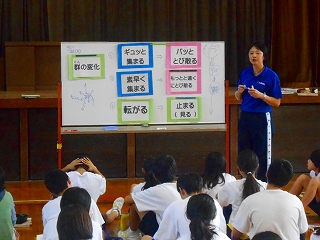 群の変化
ギュッと
集まる
パッと
とび散る
素早く
集まる
もっと遠く
にとび散る
転がる
止まる
(見る)